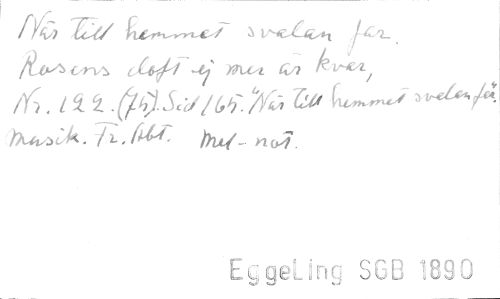 När till hemmet svalan far.
Rosens doft ej mer är kvar,
Nr. 122. (75). Sid 165. "När till hemmet svalan far.
Musik. Fr. Abt. Mel-not.
EggeLing SGB 1890